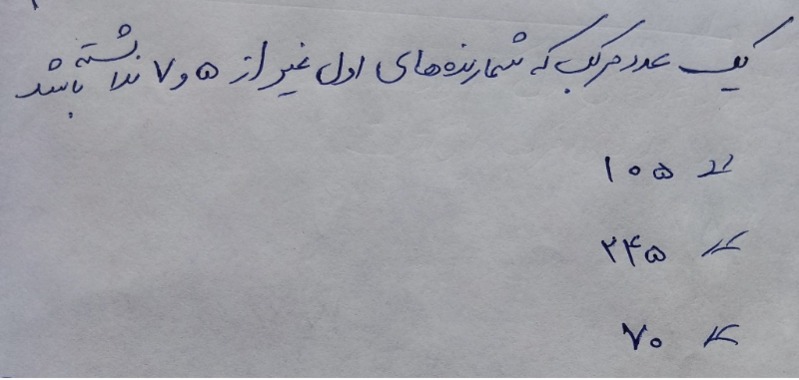 یک عدد مرکب که شمارنده‌های اول غیر از ۵ و ۷ نداشته باشد
۱۰۵
۲۴۵
۷۰